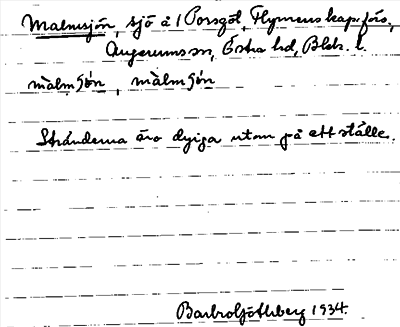 Malmsjön, sjö å 1 Porsgöl, Flymens kap.förs,
Augerums sn, Östra hd, Blek. l.
målmʃön, målmʃön
Stränderna äro dyiga utom på ett ställe.
Barbro Götlberg 1934.